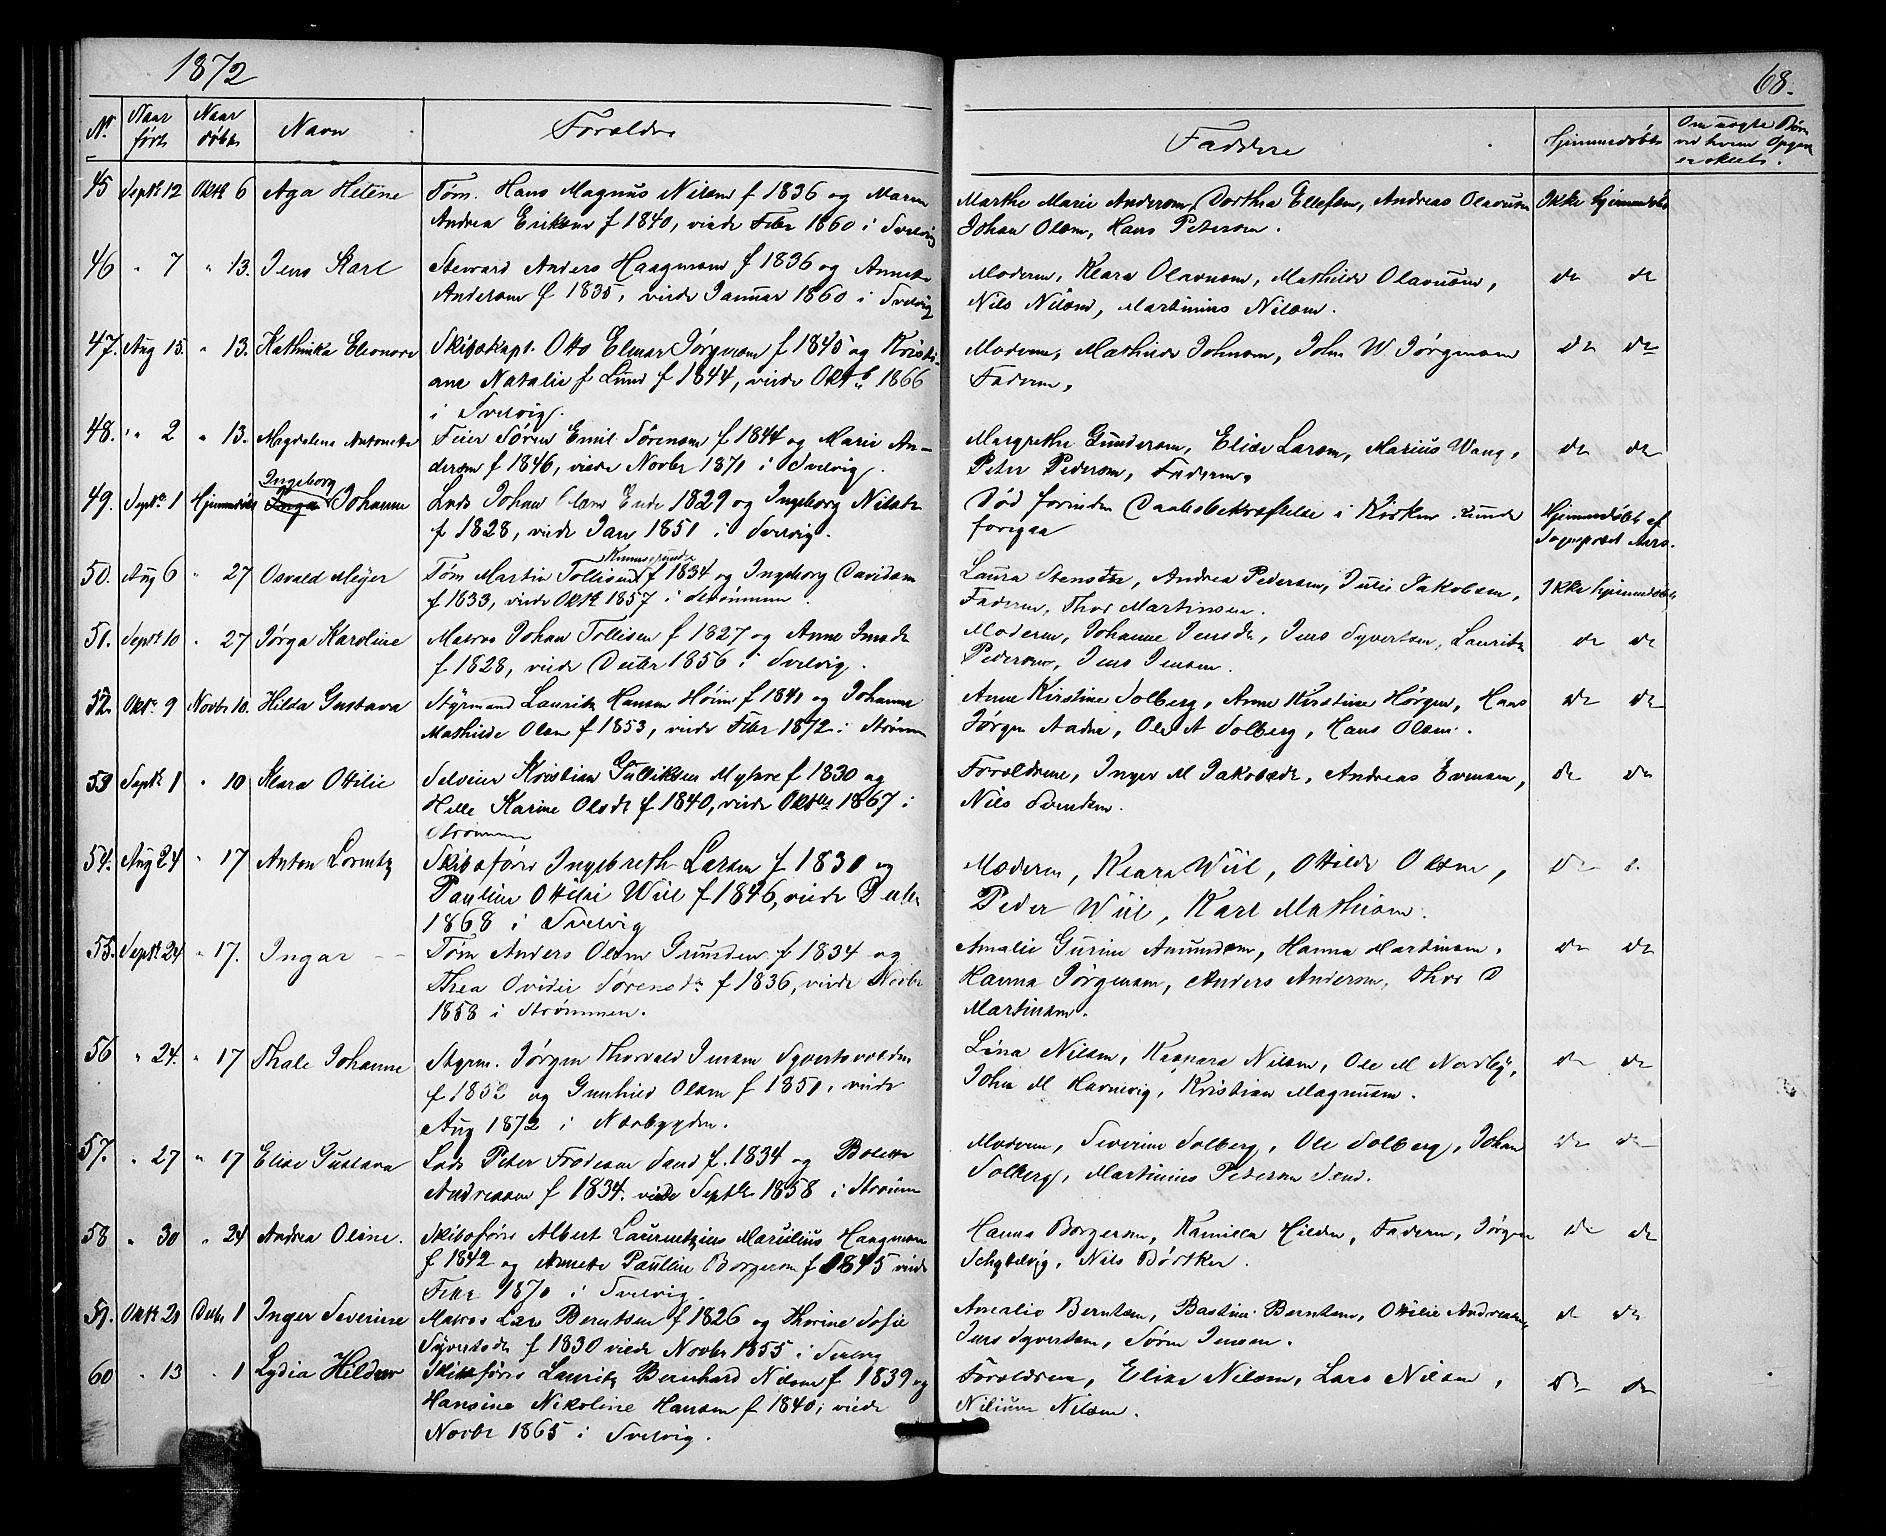 1872
68.
Nr Naar født Naar døbt Navn Forældre Faddere Hjemmedøbt Om uægte Børn ved hvem Opgave er skeet.
45 Septb 12 Oktb 6 Aga Helene Tøm. Hans Magnus Nilsen f 1836 og Maren Marthe Marie Andersen, Dorthea Ellefsen, Andreas Olavesen Ikke hjemmedøbt
Andrea Eriksen f 1840, viede Febr 1860 i Svelvig Johan Olsen, Hans Petersen.
46 " 7 " 13. Jens Karl Steward Anders Haagensen f 1836 og Annette Moderen, Klara Olavesen, Mathilde Olavesen, do do
Andersen f 1835, viede Januar 1860 i Svelvig Nils Nilsen, Martinius Nilsen.
47. Aug 15. " 13. Kathinka Eleonore Skibskapt. Otto Elmar Jørgensen f 1845 og Kristi- Moderen, Mathilde Johnsen, John W Jørgensen do do
ane Natalie f Lund f 1844, viede Oktb 1866 Faderen,
i Svelvig.
48. " 2 " 13. Magdalena Antonette Feier Søren Emil Sørensen f 1844 og Marie An- Margrethe Gundersen, Elise Larsen, Marius Wang, do do
dersen f 1846, viede Novbr 1870 i Svelvig. Peter Pedersen, Faderen.
Ingeborg
49. Septb 1 Hjemmedøbt Inga Johanne Lods Johan Olsen 1829 og Ingeborg Nilsdr Død forinden Daabsbekræftelse i Kirken kunde Hjemmedøbt af
f 1828, viede Jan 1851 i Svelvig. foregaa Sogneprest
50. Aug 6 " 27 Osvald Meyer Tøm Martin Tollisen f 1834 og Ingeborg Davidsen Laura Andrea Pedersen, Julie Jakobsen, Ikke hjemmedøbt
f 1833, viede Oktb 1857 i Strømmen. Faderen, Thor Martinsen.
51. Septb 10 " 27 Jørga Karoline Matros Johan Tollisen f 1827 og Anne Jensdr Moderen, Johanne Jensdr, Jens Syvertsen, Lauritz do do
f 1828, viede Decbr 1856 i Svelvig. Pedersen, Jens Jensen.
52. Oktb 9 Novbr 10. Hilda Gustava Styrmand Lauritz Hansen f 1841 og Johanne Anne Kirstine Solberg, Anne Kirstine Hørgen, Hans do do
Mathilde Olsen f 1853, viede Febr 1872 i Strømm Jørgen Aadne, Ole A Solberg, Hans Olsen.
53 Septb 1 " 10 Klara Ottilie Selveier Kristian Gulliksen Myhre f 1830 og Forældrene, Inger M Jakobsdr, Andreas Evensen, do do
Helle Karine Olsdr f 1840, viede Oktbr 1867 i Nils Svendsen.
Strømmen
54. Aug 24 " 17 Anton Lorentz Skibsfører Ingebreth Larsen f 1831 og Moderen, Klara Wiil, Ottilde Olsen, do d.
Pauline Ottilie Wiil f 1846, viede Decbr Peder Wiil, Karl Mathisen.
1868 i Svelvig
55. Septb 24 " 17. Ingar Tøm Anders Olsen Grunden f 1834 og Amalie Gurine Amundsen, Hanna Martinsen, do do
Thea Ovidie Sørensdr f 1836, viede Novbr Hanna Jørgensen, Anders Andersen, Thor D
1858 i Strømmen. Martinsen.
56 " 24. " 17 Thale Johanne Styrm. Jørgen Thorvald Jensen Syvertsvolden Lina Nilsen, Kaspara Nilsen, Ole M Nordby, do do
f 1852 og Gunhild Olsen f 1851, viede John M Havnevig, Kristian Magnussen.
Aug 1872 i Næsbygden.
57. " 27 " 17 Elise Gustava Lods Peter Frodesen Sand f. 1834 og Bolette Moderen, Severine Solberg, Ole Solberg, Johan do do
Andreassen f 1834. viede Septbr 1858 i Strømm Solberg, Martinius Petersen Sand.
58 " 30 " 24 Andrea Oline. Skibsfører Albert Laurentzius Marulius Haagensen Hanna Borgersen, Kamilla Hilden, Faderen, Jørgen do do
f 1842 og Annette Pauline Borgersen f 1845 viede Schjelvig, Nils Børtker.
Febr 1870 i Svelvig.
59. Oktb 21 Decbr 1 Inger Severine Matros Lars Berntsen f 1826 og Thorine Sofie Amalie Berntsen, Bastine Berntsen, Ottilie Andreasen do do
Syvertsdr f 1830 viede Novbr 1855 i Svelvig Jens Syvertsen, Søren Jensen.
60 " 13 " 1 Lydia Hildur Skibsfører Lauritz Bernhard Nilsen f 1839 og Forældrene, Elise Nilsen, Lars Nilsen, do do
Hansine Nikoline Hansen f 1840, viede Nilsen.
Novbr 1865 i Svelvig.